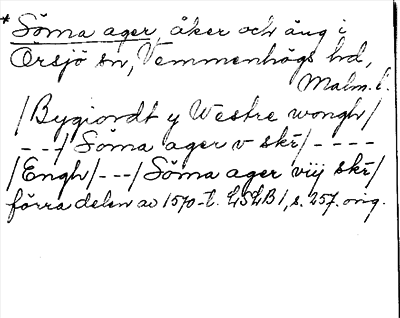 * Söma ager, åker och äng i
Örsjö sn, Vemmenhögs hd,
Malm. l.
/Bygiordt y Westre wongh/
- - -/ Söma ager v skr̃/ - - - -
/Engh/ - - -/ Söma ager viij skr̃/
förra delen av 1570-t. LSLB 1, s. 257. orig.